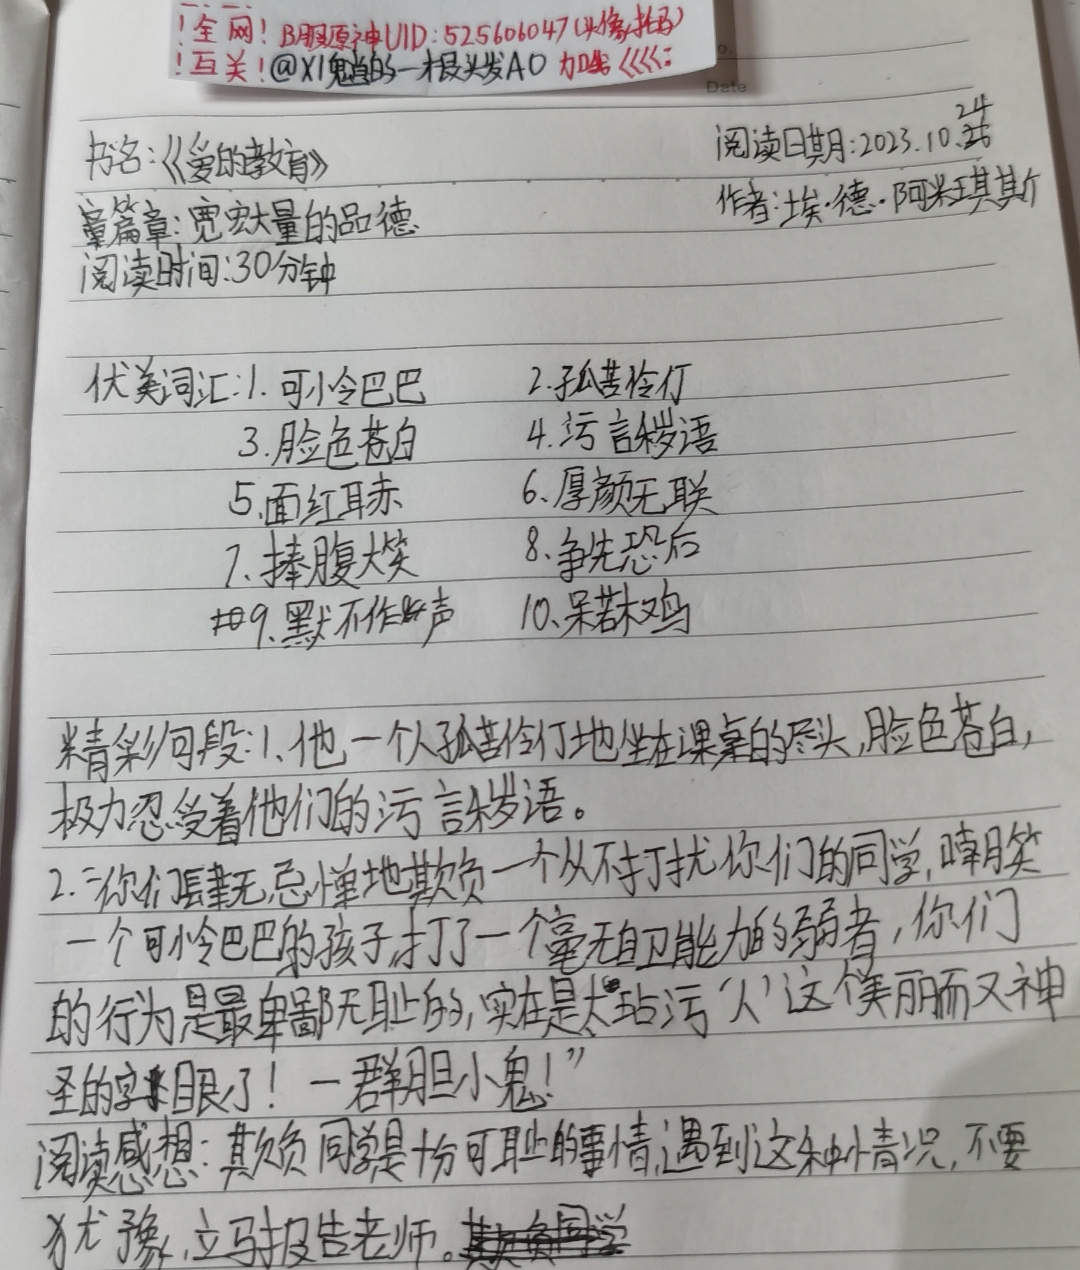 !全网! B服原神UID:525606047(头像扫码)
!互关! @XI鬼道的一根头发AO 加
No.
Date
书名:《爱的教育》
阅读日期:2023.10.24
章篇章:宽宏大量的品德
作者:埃·德·阿米琪斯
阅读时间:30分钟
优美词汇:1.可怜巴巴 2.孤苦伶仃
3.脸色苍白 4.污言秽语
5.面红耳赤 6.厚颜无耻
7.捧腹大笑 8.争先恐后
9.默不作声 10.呆若木鸡
精彩句段:1.他一个人孤苦伶仃地坐在课桌的尽头,脸色苍白,
极力忍受着他们的污言秽语。
2.“你们肆无忌惮地欺负一个从不打扰你们的同学,嘲笑
一个可怜巴巴的孩子,打了一个毫无自卫能力的弱者,你们
的行为是最卑鄙无耻的,实在是太玷污‘人’这个美丽而又神
圣的字眼了!一群胆小鬼!”
阅读感想:欺负同学是十分可耻的事情,遇到这种情况,不要
犹豫,立马报告老师。